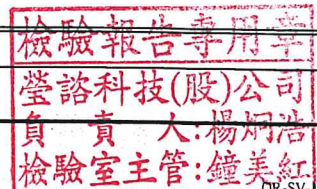 檢驗報告專用章
瑩諮科技(股)公司
負責人:楊炯浩
檢驗室主管:鐘美紅
QR-SV-